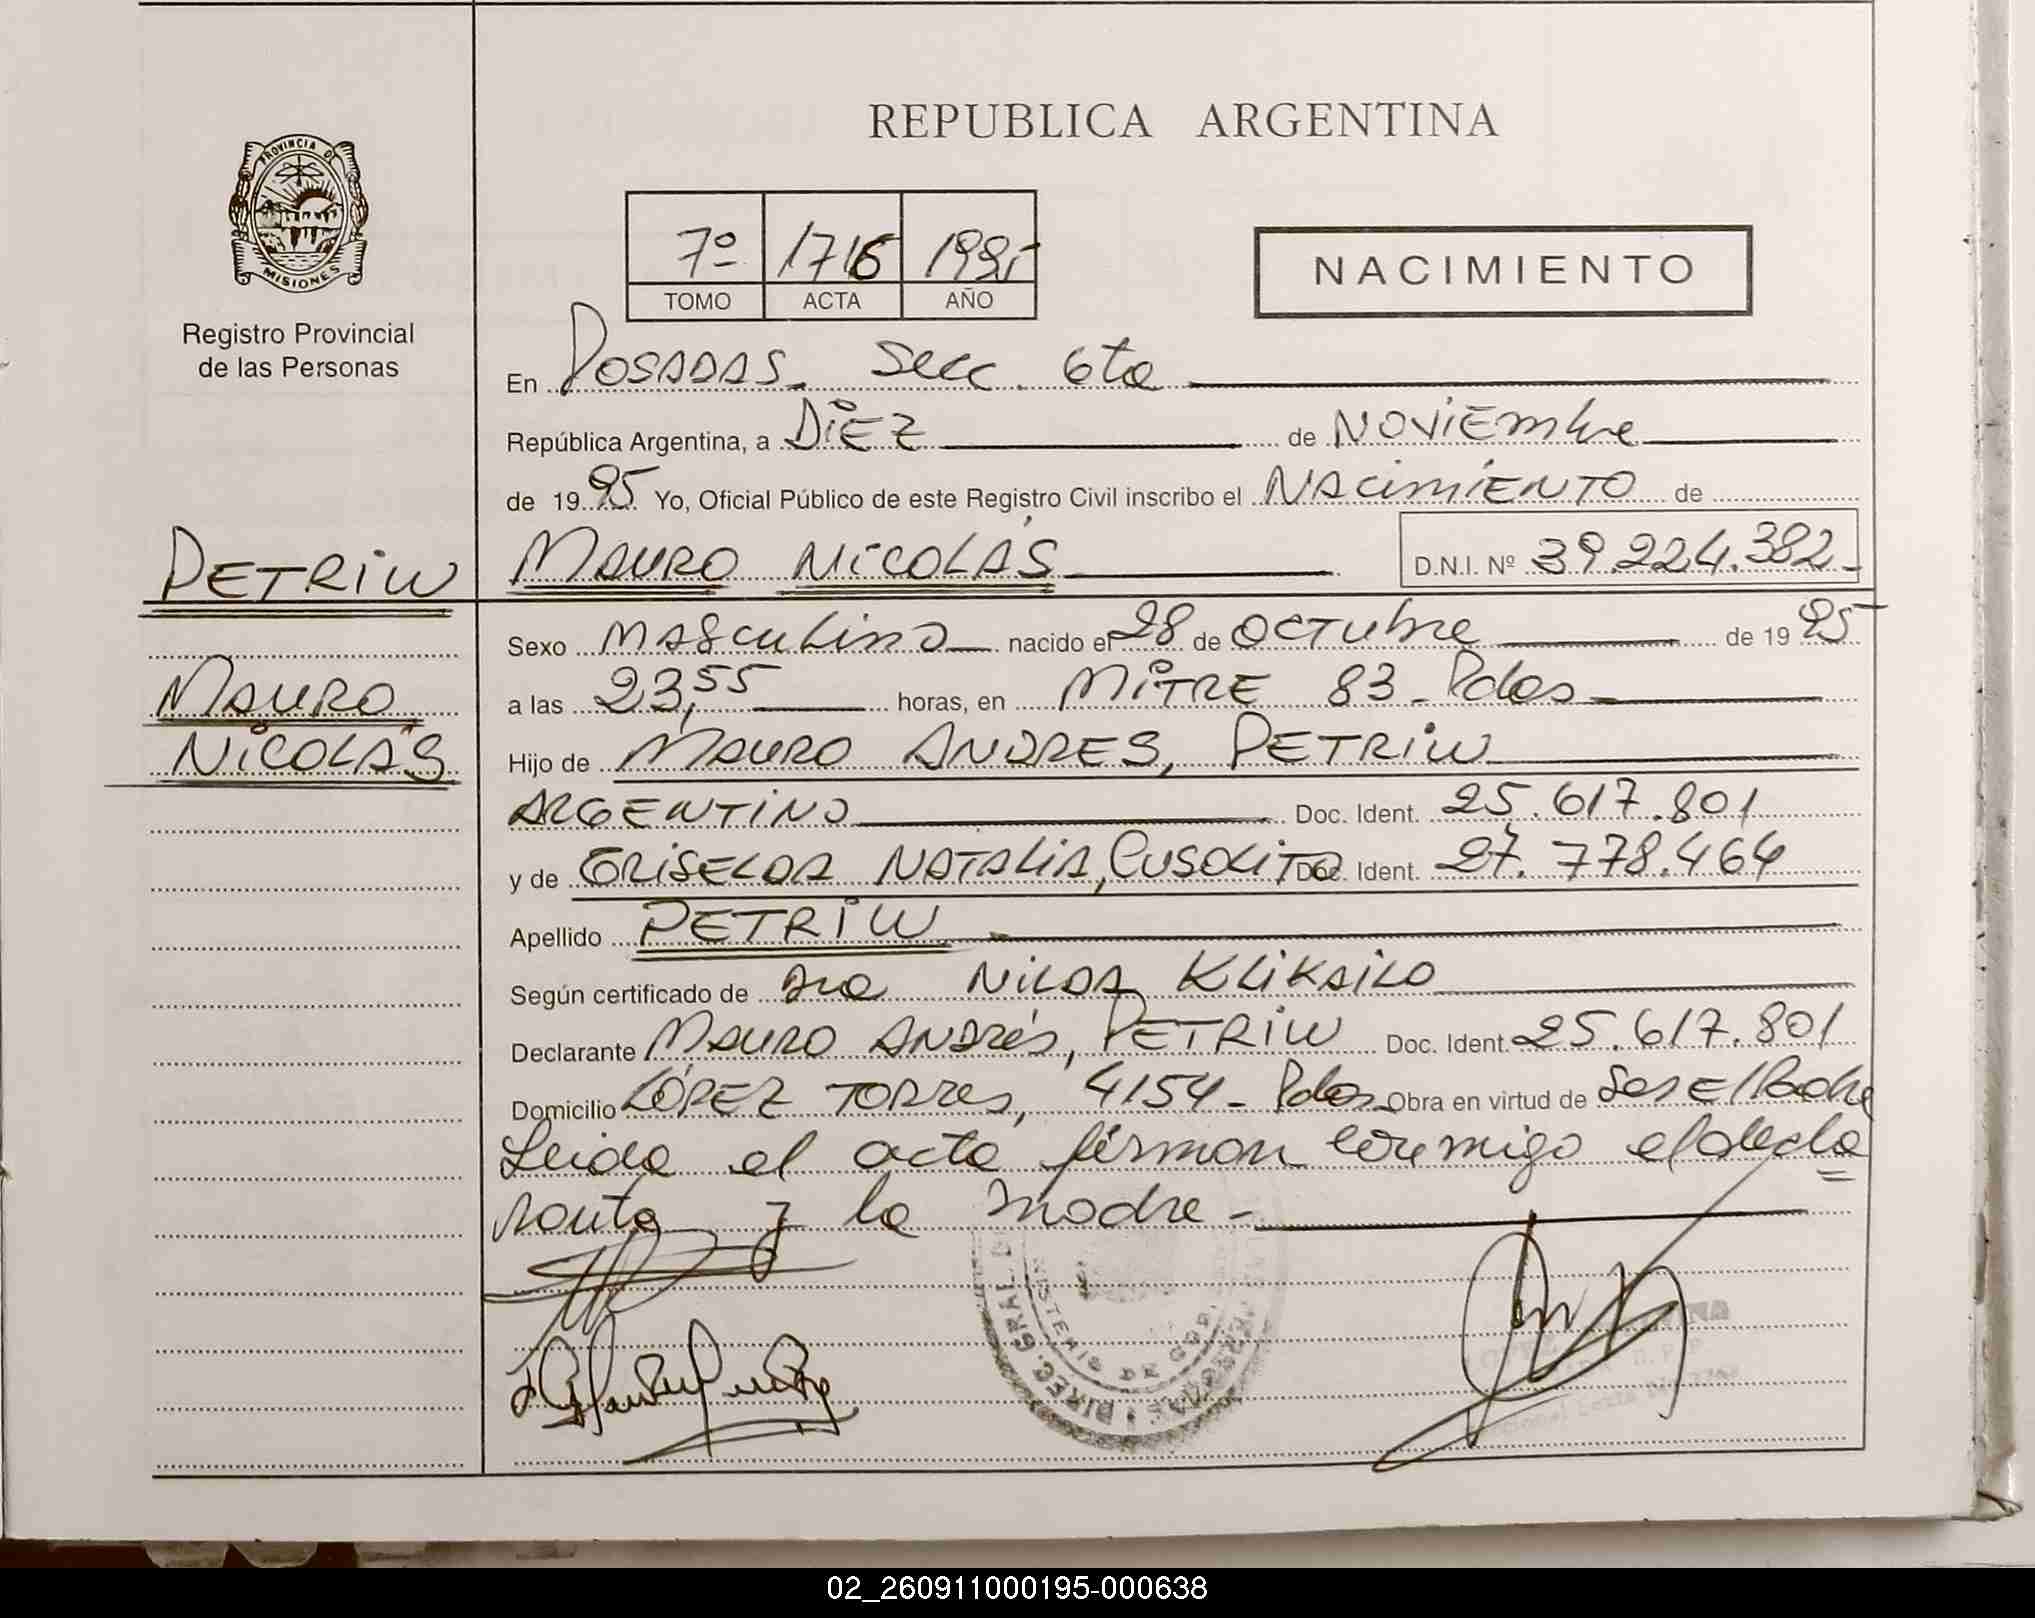 REPUBLICA ARGENTINA
PROVINCIA DE
MISIONES
Registro Provincial
de las Personas
7º 1716 1995
TOMO ACTA AÑO
NACIMIENTO
En POSADAS Secc. 6ta
República Argentina, a DIEZ de NOVIEMbre
de 1995 Yo, Oficial Público de este Registro Civil inscribo el NACIMIENTO de
PETRIW
MAURO NICOLÁS D.N.I. Nº 39.224.382
MAURO
NICOLÁS
Sexo MASCULINO nacido el 28 de OCTUbre de 1995
a las 23,55 horas, en MITRE 83 - Pdas
Hijo de MAURO ANDRES, PETRIW
ARGENTINO Doc. Ident. 25.617.801
y de GRISELDA NATALIA, CUSOLITO Doc. Ident. 27.778.464
Apellido PETRIW
Según certificado de Dra NILDA KLIKAILO
Declarante MAURO ANDRés, PETRIW Doc. Ident. 25.617.801
Domicilio LÓPEZ TORRes, 4154 - Pdas Obra en virtud de Ser El Padre
Leida el acta firman conmigo el decla
rante y la madre -
DIREC. GRAL. D
MINISTERIO DE GOB
02_260911000195-000638